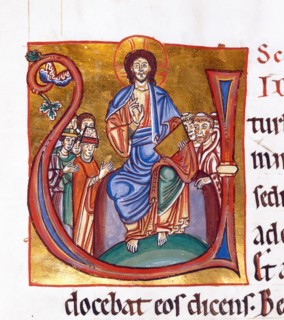 Sc
tur
inm
sedi
ade
Et a
docebat eos dicens. Be